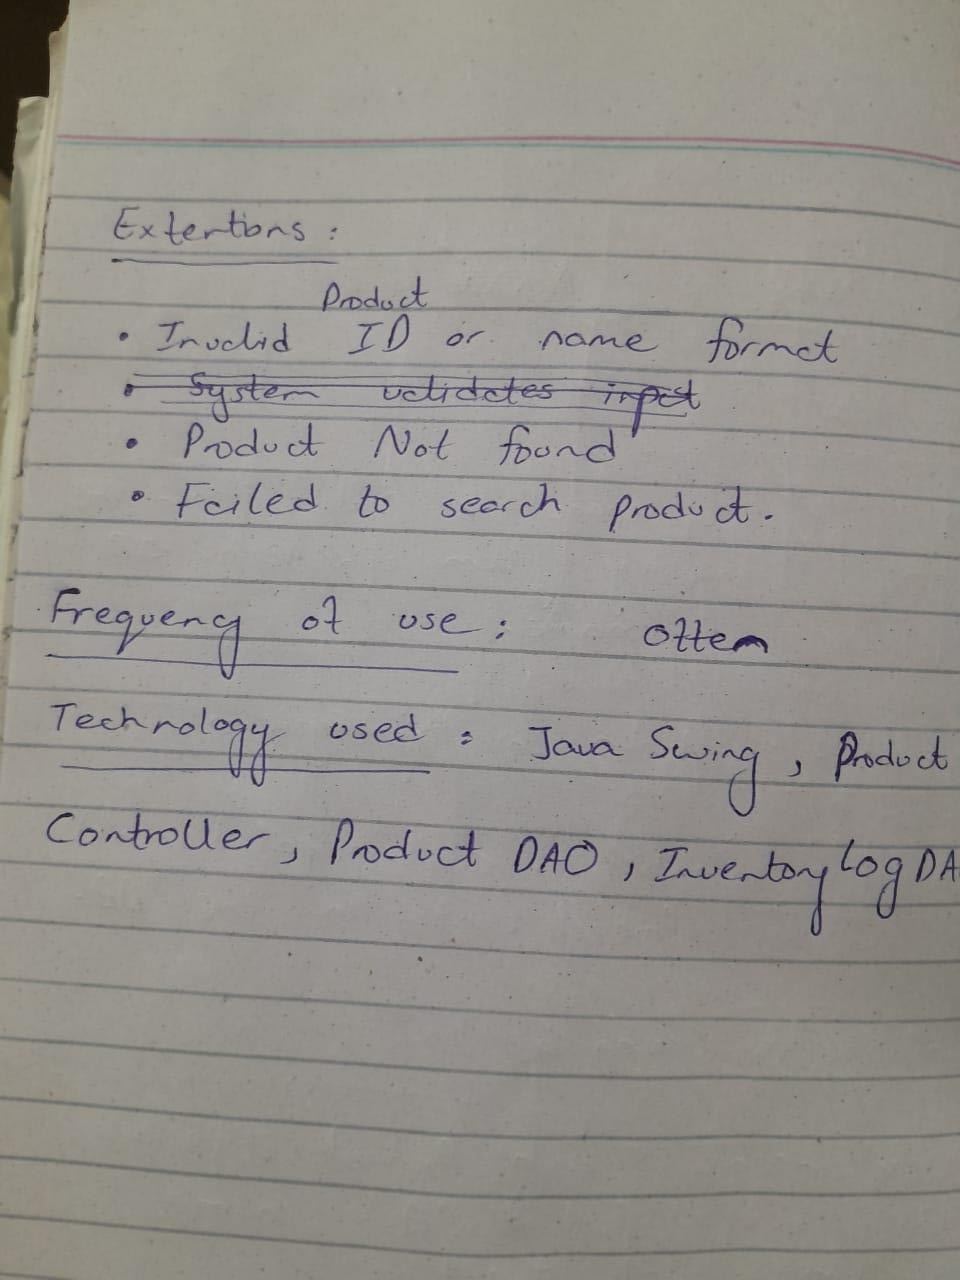 Extentions :
Product
• Invalid ID or name format
• System validates input
• Product Not found
• Failed to search product.
Frequency of use : Often
Technology used : Java Swing, Product
Controller, Product DAO, Inventory Log DA